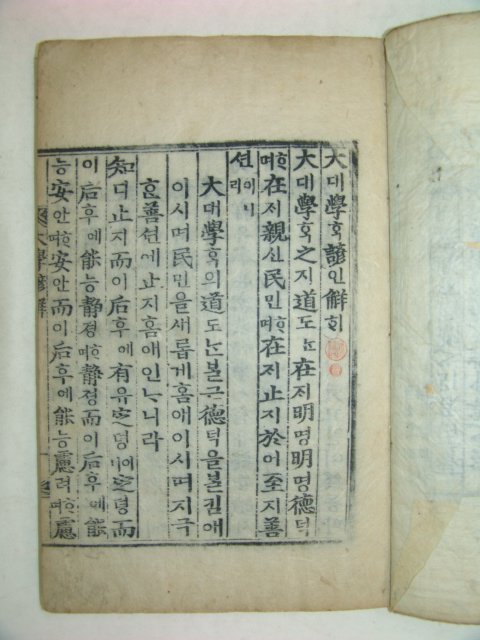 大대學ᄒᆞᆨ諺언解ᄒᆡ
大대學ᄒᆞᆨ之지道도ᄂᆞᆫ在ᄌᆡ明명明명德덕
ᄒᆞ며在ᄌᆡ親신民민ᄒᆞ며在ᄌᆡ止지於어至지善
션이니라
大대學ᄒᆞᆨ의道도ᄂᆞᆫ ᄇᆞᆯ근德덕을ᄇᆞᆯ킴애
이시며民민을새롭게홈애이시며지극
ᄒᆞᆫ善션에止지홈애인ᄂᆞ니라
知디止지而이后후에有유定뎡이니定뎡而
이后후에能능靜졍ᄒᆞ며靜졍而이后후에能
능安안ᄒᆞ며安안而이后후에能능慮려ᄒᆞ며慮
大學諺解